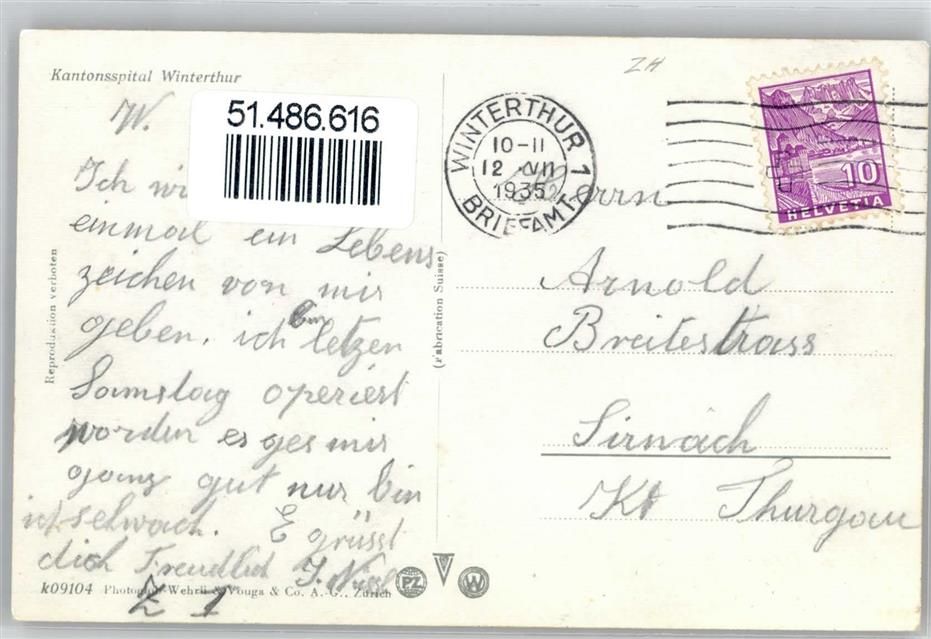 Kantonsspital Winterthur
ZH
W.
51.486.616
Ich
einmal ein Lebens
zeichen von mir
geben, ich bin letzen
Samstag operiert
worden es ges mir
ganz gut nur bin
ich schwach. E grüsst
dich Freundlich J.
Z 1
k09104 Photogr. Wehrli & Vouga & Co. A. G., Zürich
Reproduktion verboten
(Fabrication Suisse)
WINTERTHUR 1
10-11
12 VII
1935
BRIEFAMT
10
HELVETIA
Herrn
Arnold
Breitestrass
Sirnach
Kt Thurgau
PZ
W